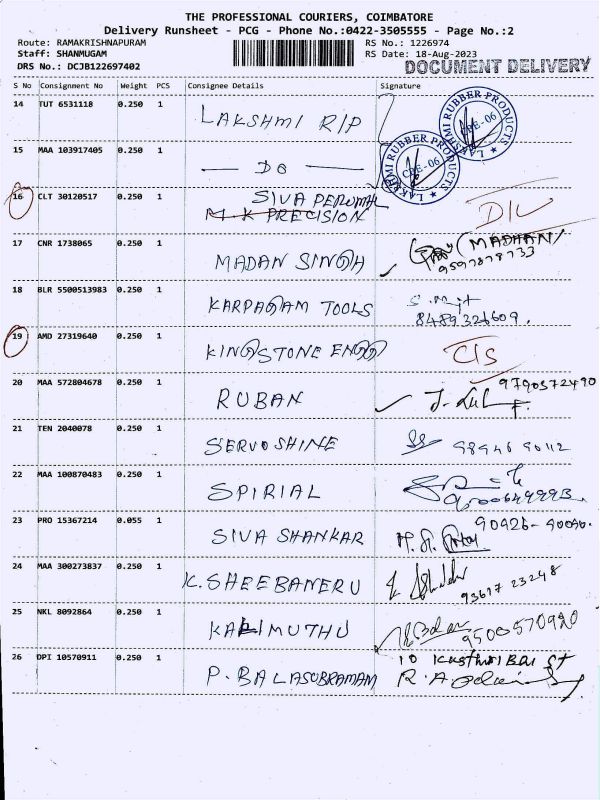 THE PROFESSIONAL COURIERS, COIMBATORE
Delivery Runsheet - PCG - Phone No.:0422-3505555 - Page No.:2
Route: RAMAKRISHNAPURAM RS No.: 1226974
Staff: SHANMUGAM RS Date: 18-Aug-2023
DRS No.: DCJB122697402 DOCUMENT DELIVERY
S No Consignment No Weight PCS Consignee Details Signature
14 TUT 6531118 0.250 1 LAKSHMI R/P
LAKSHMI RUBBER PRODUCTS
CBE-06
15 MAA 103917405 0.250 1 DO
LAKSHMI RUBBER PRODUCTS
CBE-06
16 CLT 30120517 0.250 1 SIVA PERUMAL
M K PRECISION D/L
17 CNR 1738065 0.250 1 MADAN SINGH (MADHAN)
9597878733
18 BLR 5500513983 0.250 1 KARPAGAM TOOLS
8489326609.
19 AMD 27319640 0.250 1 KINGSTONE ENGG C/S
20 MAA 572804678 0.250 1 RUBAN 9790572490
21 TEN 2040078 0.250 1 SERVOSHINE 98946 90112
22 MAA 100870483 0.250 1 SPIRIAL
23 PRO 15367214 0.055 1 SIVA SHANKAR 90926-90090.
24 MAA 300273837 0.250 1 K.SHEEBANERU 93617 23248
25 NKL 8092864 0.250 1 KALIMUTHU 9500570920
26 DPI 10570911 0.250 1 P.BALASUBRAMAM 10 Kasthuri Bai St